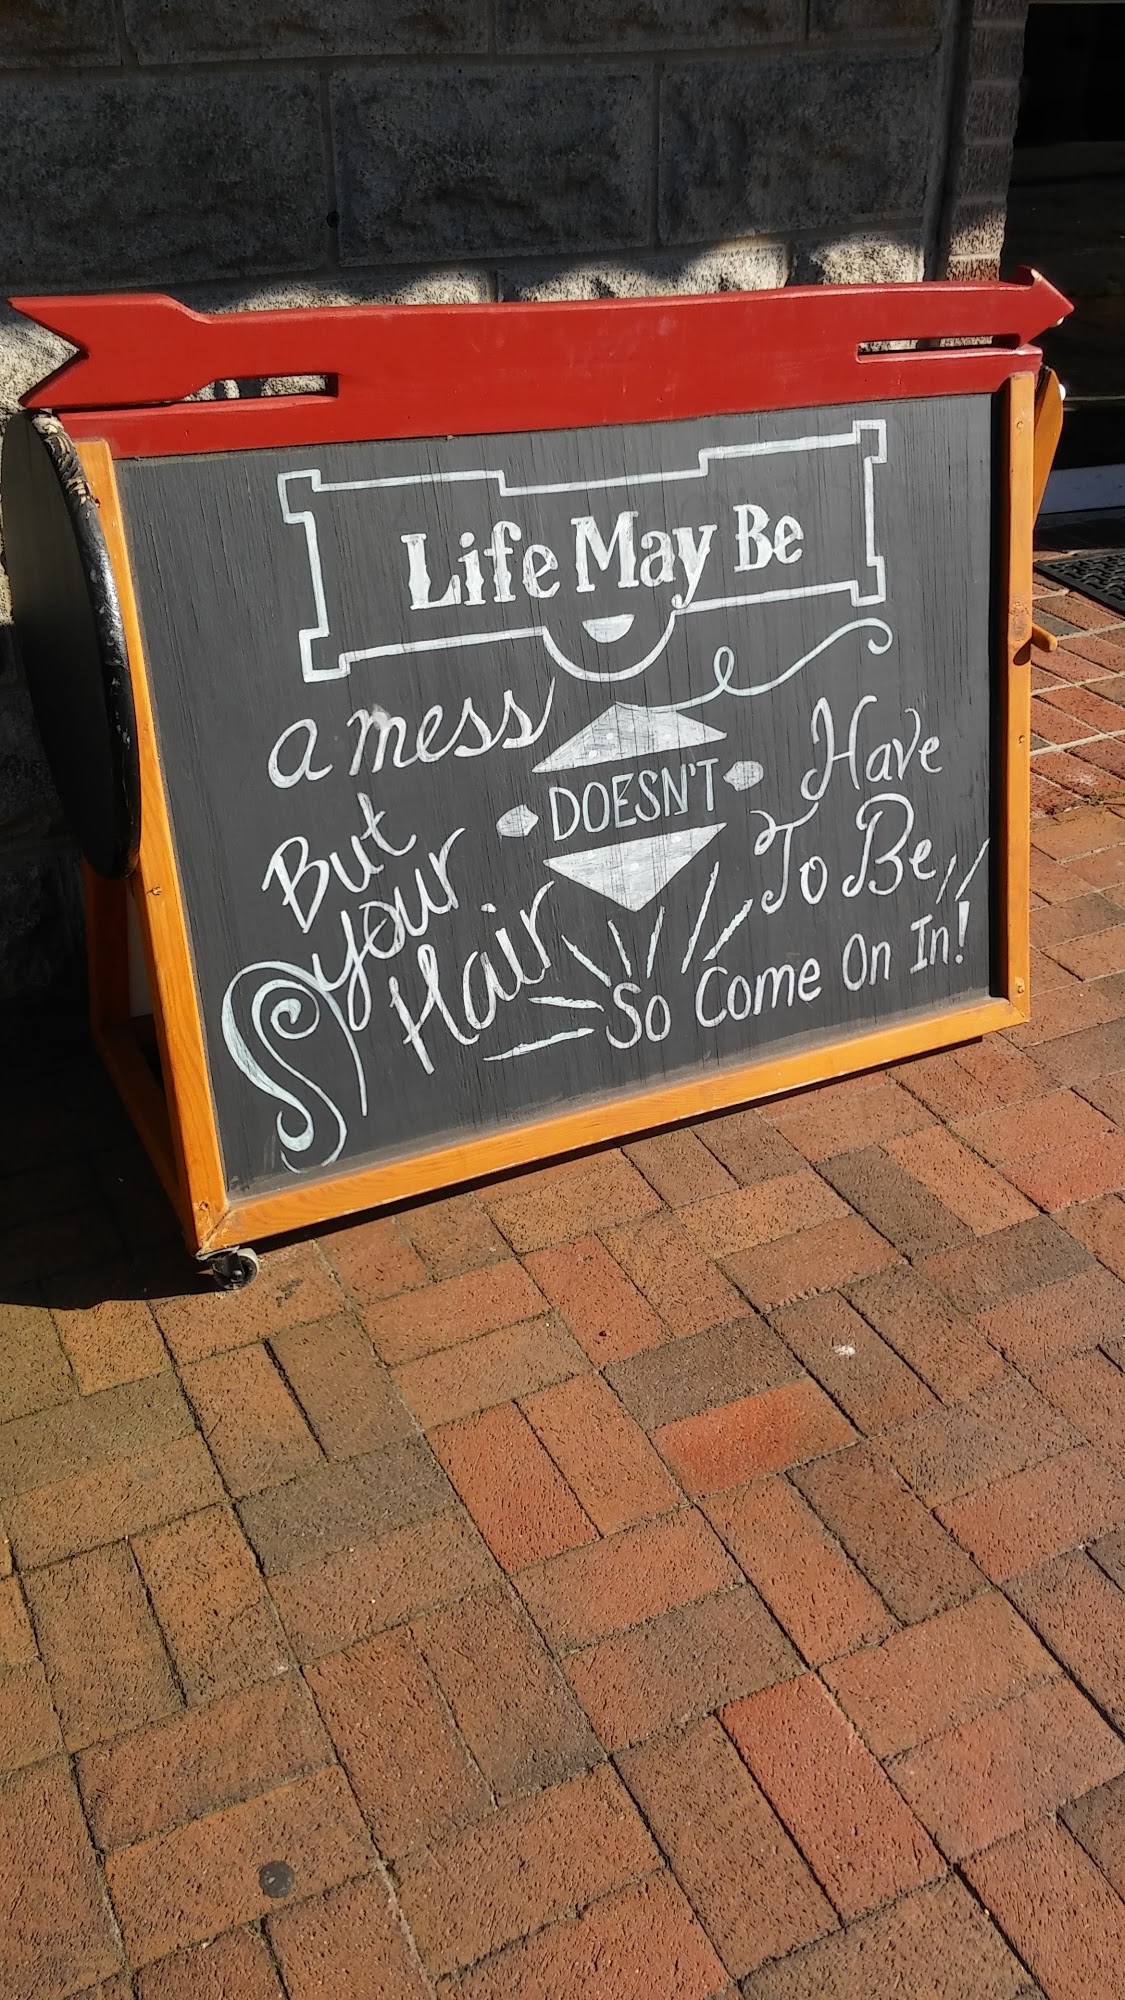 Life May Be
a mess
But
your
Hair
DOESN'T
Have
To Be
So Come On In!